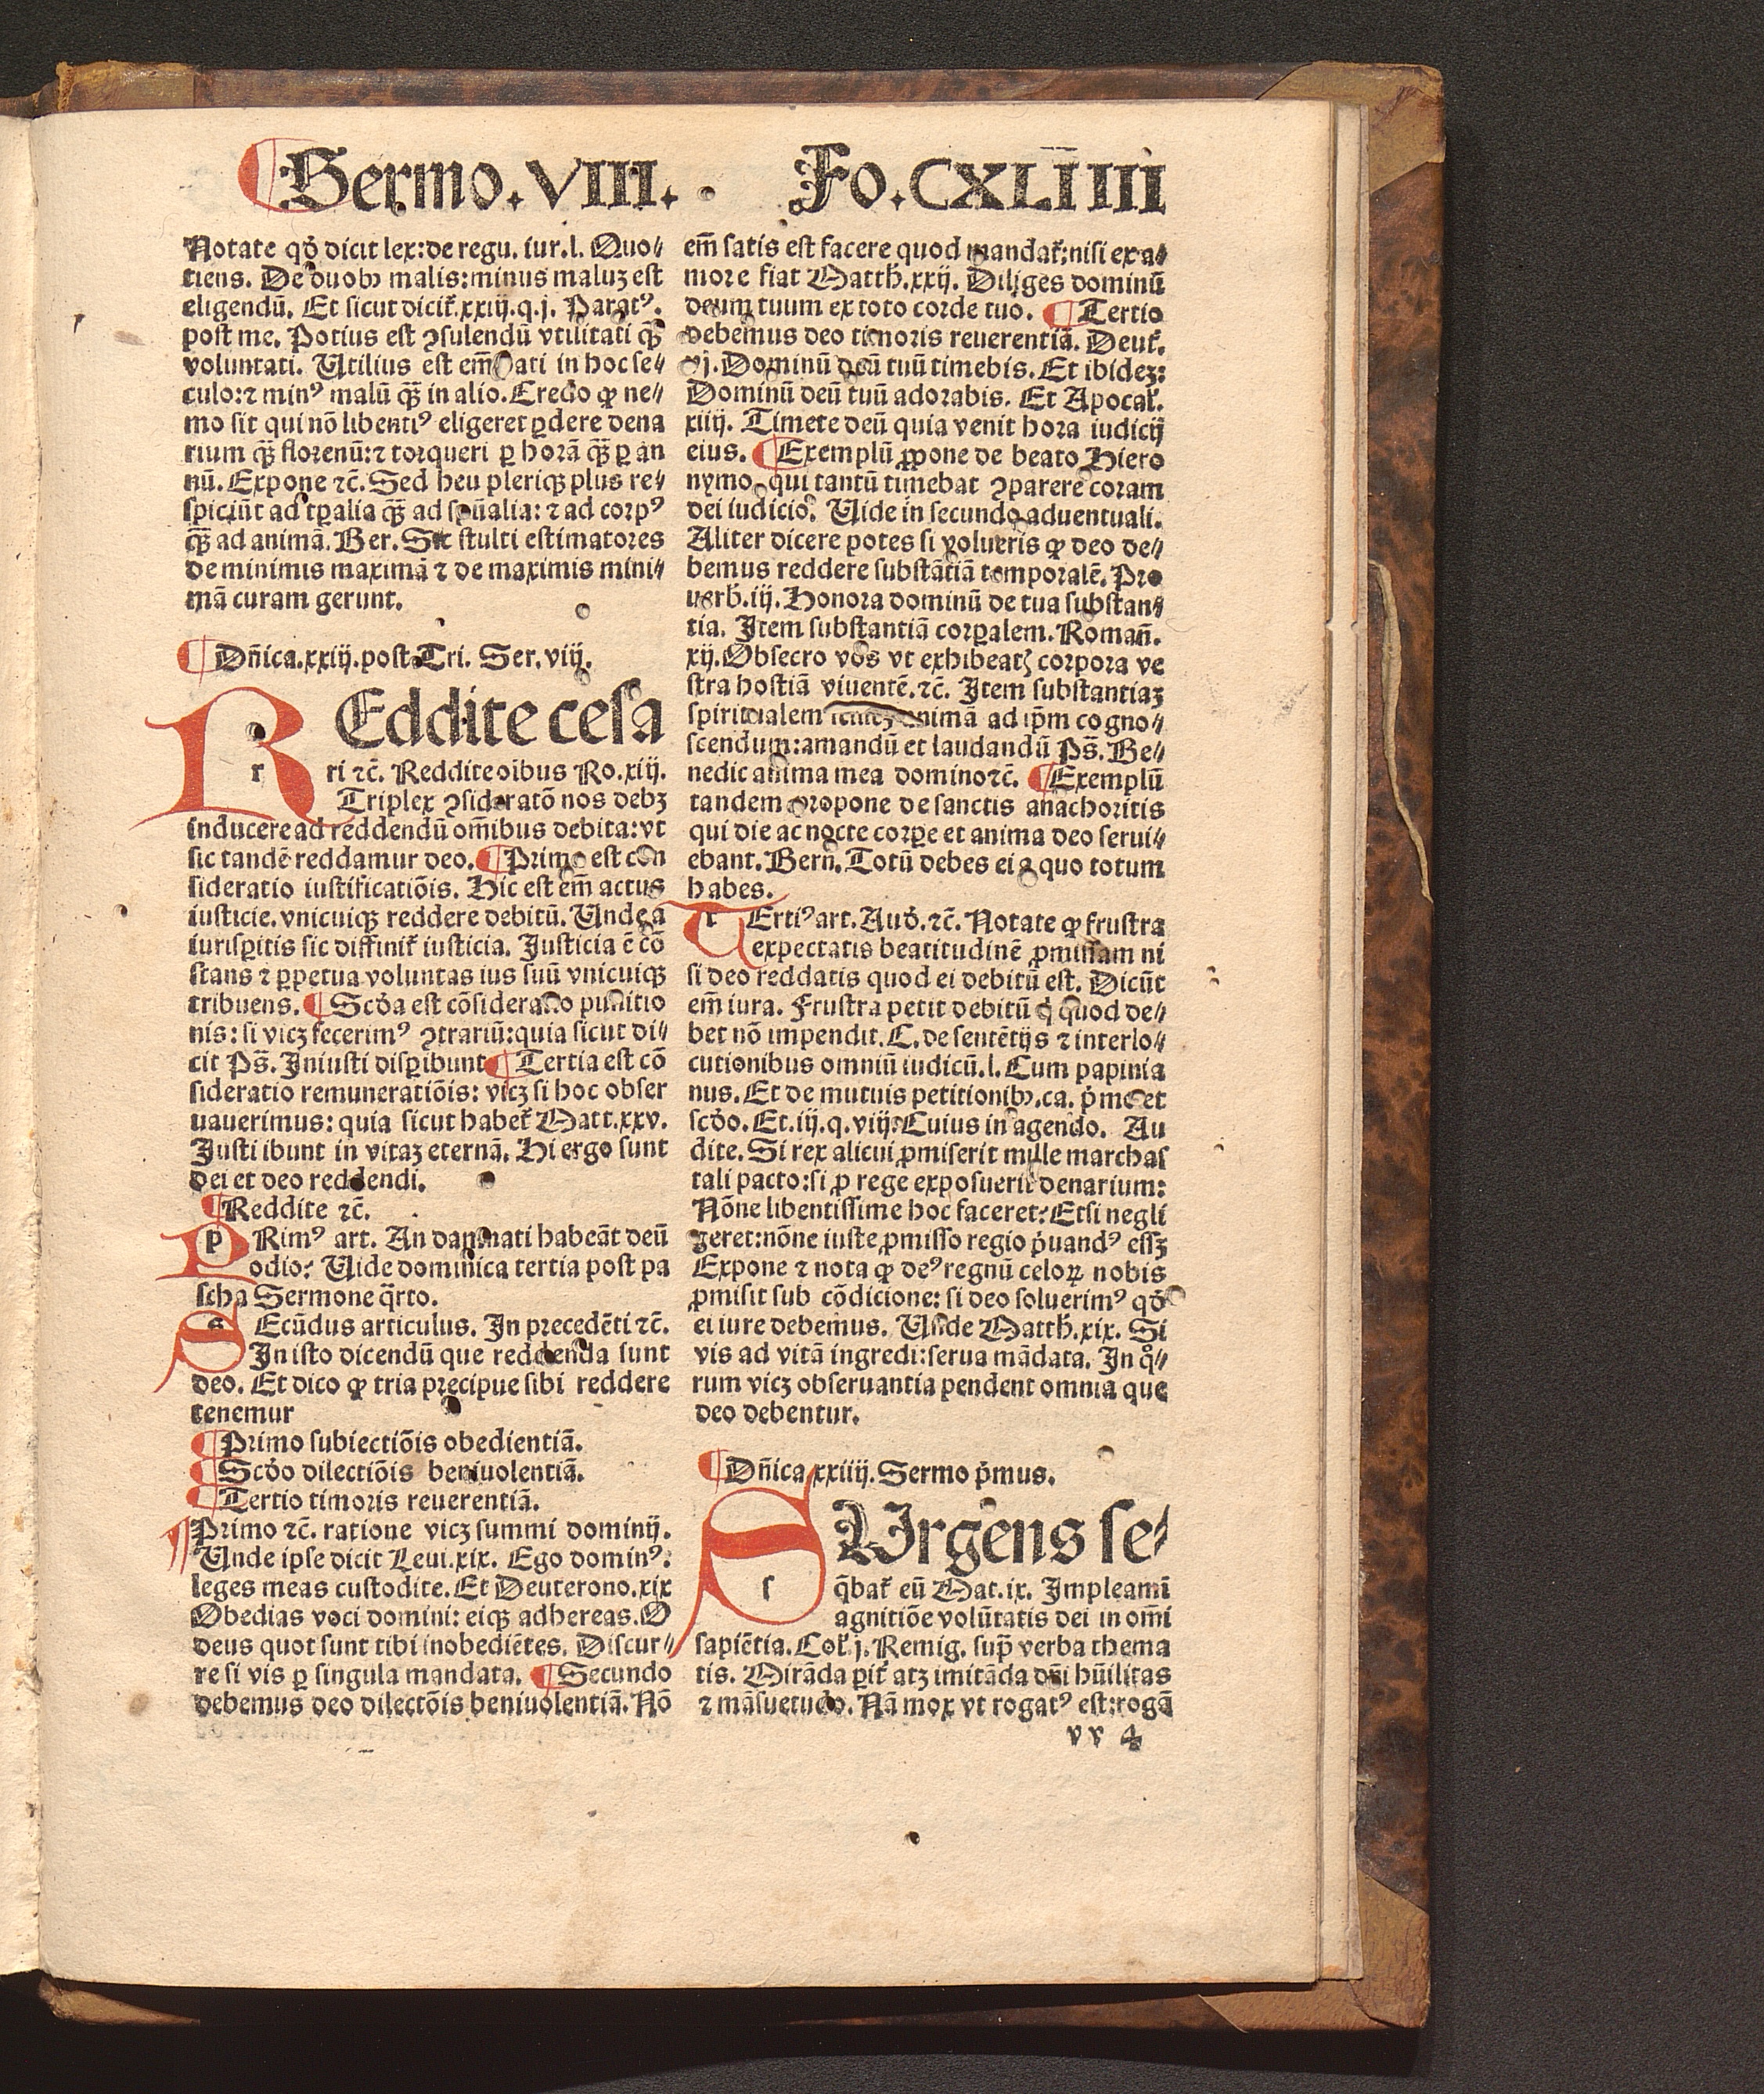 ¶Sermo.VIII. Fo.CXLIIIII
Notate qḋ dicit lex:de regu. iur.l. Quo⸗
tiens. De duobꝫ malis:minus maluꝫ est
eligendū. Et sicut dicit̄.xxiij.q.j. Paratꝰ.
post me. Potius est ꝯsulendū vtilitati qꝫ̄
voluntati. Utilius est em̄ pati in hoc se⸗
culo:⁊ minꝰ malū qꝫ̄ in alio. Credo ꝙ ne⸗
mo sit qui nō libentiꝰ eligeret ꝑdere dena
rium qꝫ̄ florenū:⁊ torqueri ꝑ horā qꝫ̄ ꝑ an
nū. Expone ⁊c̄. Sed heu pleriqꝫ plus re⸗
spiciūt ad tꝑalia qꝫ̄ ad spūalia: ⁊ ad corpꝰ
qꝫ̄ ad animā. Ber. Sic stulti estimatores
de minimis maximā ⁊ de maximis mini⸗
mā curam gerunt.
¶Dn̄ica.xxiij.post Tri. Ser.viij.
REddite cesa
r
ri ⁊c̄. Reddite oībus Ro.xiij.
Triplex ꝯsideratō nos debꝫ
inducere ad reddendū om̄ibus debita:vt
sic tandē reddamur deo. ¶Primo est con
sideratio iustificatiōis. Hic est em̄ actus
iusticie. vnicuiqꝫ reddere debitū. Unde a
iurisꝑitis sic diffinit̄ iusticia. Justicia ē cō
stans ⁊ ꝑpetua voluntas ius suū vnicuiqꝫ
tribuens. ¶Scḋa est cōsideratio punitio
nis: si vicꝫ fecerimꝰ ꝯtrariū:quia sicut di⸗
cit Ps̄. Iniusti disꝑibunt ¶Tertia est cō
sideratio remuneratiōis: vicꝫ si hoc obser
uauerimus: quia sicut habet̄ Matt.xxv.
Justi ibunt in vitaꝫ eternā. Hi ergo sunt
dei et deo reddendi.
¶Reddite ⁊c̄.
PRimꝰ art. An damnati habeāt deū
odio? Uide dominica tertia post pa
scha Sermone q̄rto.
SEcūdus articulus. In precedēti ⁊c̄.
In isto dicendū que reddenda sunt
deo. Et dico ꝙ tria precipue sibi reddere
tenemur
¶Primo subiectiōis obedientiā.
¶Scḋo dilectiōis beniuolentiā.
¶Tertio timoris reuerentiā.
¶Primo ⁊c̄. ratione vicꝫ summi dominij.
Unde ipse dicit Leui.xix. Ego dominꝰ:
leges meas custodite. Et Deuterono.xix
Obedias voci domini: eiqꝫ adhereas. O
deus quot sunt tibi inobediētes. Discur⸗
re si vis ꝑ singula mandata. ¶Secundo
debemus deo dilectōis beniuolentiā. Nō
em̄ satis est facere quod mandat̄:nisi ex a⸗
more fiat Matth̄.xxij. Diliges dominū
deum tuum ex toto corde tuo. ¶Tertio
debemus deo timoris reuerentiā. Deut̄.
vj. Dominū deū tuū timebis. Et ibideꝫ:
Dominū deū tuū adorabis. Et Apocal̄.
xiiij. Timete deū quia venit hora iudicij
eius. ¶Exemplū ꝓpone de beato Hiero
nymo qui tantū timebat ꝯparere coram
dei iudicio. Uide in secundo aduentuali.
Aliter dicere potes si volueris ꝙ deo de⸗
bemus reddere substātiā temporalē. Pro
uerb̄.iij. Honora dominū de tua substan⸗
tia. Item substantiā corꝑalem. Roman̄.
xij. Obsecro vos vt exhibeatꝫ corpora ve
stra hostiā viuentē.⁊c̄. Item substantiaꝫ
spiritualem animā ad ip̄m cogno⸗
scendum:amandū et laudandū Ps̄. Be⸗
nedic anima mea domino⁊c̄. ¶Exemplū
tandem propone de sanctis anachoritis
qui die ac nocte corꝑe et anima deo serui⸗
ebant. Bern̄. Totū debes ei a quo totum
habes.
TErtiꝰ art. Auḋ. ⁊c̄. Notate ꝙ frustra
expectatis beatitudinē ꝓmissam ni
si deo reddatis quod ei debitū est. Dicūt
em̄ iura. Frustra petit debitū q̇ quod de⸗
bet nō impendit. C. de sentētijs ⁊ interlo⸗
cutionibus omniū iudicū.l. Cum papinia
nus. Et de mutuis petitionibꝫ.ca. ṗmo et
scḋo. Et.iij.q.viij. Cuius in agendo. Au
dite. Si rex alicui ꝓmiserit mille marchas
tali pacto:si ꝓ rege exposuerit denarium:
Nōne libentissime hoc faceret? Etsi negli
geret:nōne iuste ꝓmisso regio ṗuandꝰ essꝫ
Expone ⁊ nota ꝙ deꝰ regnū celoꝝ nobis
ꝓmisit sub cōdicione: si deo soluerimꝰ qḋ
ei iure debemus. Unde Matth̄.xix. Si
vis ad vitā ingredi:serua mādata. In qͦ⸗
rum vicꝫ obseruantia pendent omnia que
deo debentur.
¶Dn̄ica xxiiij. Sermo ṗmus.
SUrgens se⸗
s
q̄bat̄ eū Mat.ix. Impleamī
agnitiōe volūtatis dei in om̄i
sapiētia. Col̄.j. Remig. sup̄ verba thema
tis. Mirāda ꝑit̄ atꝫ imitāda dn̄i hūilitas
⁊ māsuetudo. Nā mox vt rogatꝰ est:rogā
vv 4